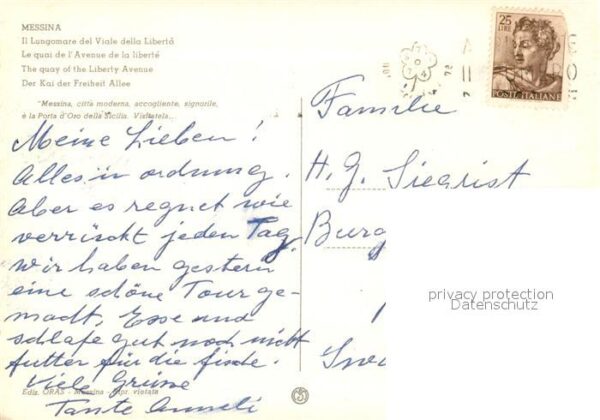 MESSINA
Il Lungomare del Viale della Libertà
Le quai de l'Avenue de la liberté
The quay of the Liberty Avenue
Der Kai der Freiheit Allee
"Messina, città moderna, accogliente, signorile,
è la Porta d'Oro della Sicilia. Visitatela.
Meine Lieben!
Alles in ordnung.
Aber es regnet wie
verrückt jeden Tag.
Wir haben gestern
eine schöne Tour ge-
macht, Esse und
schlafe gut noch nicht
futter für die fische.
Viele Grüsse
Tante Anneli
Ediz. ORAS - Messina - Ripr. vietata
25
LIRE
POSTE ITALIANE
Familie
H. G. Siegrist
Burg
privacy protection
Datenschutz